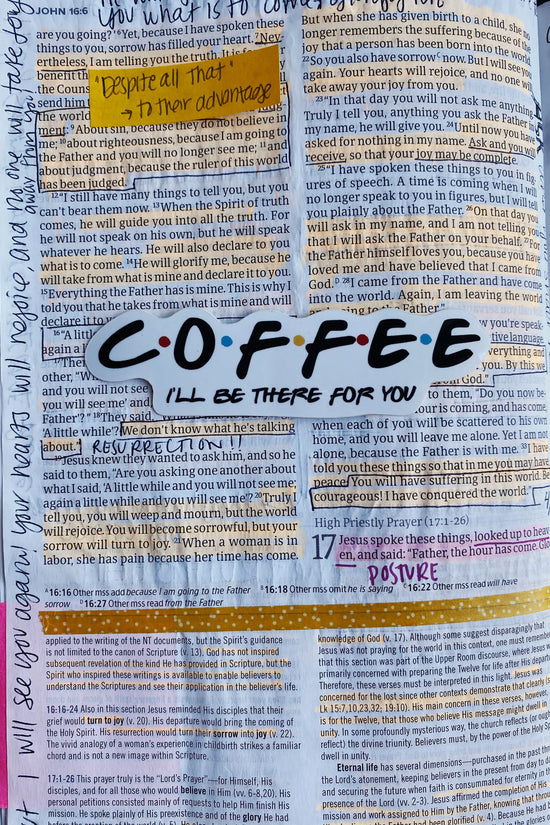 JOHN 16:6
you what is to come
are you going?' ⁶ Yet, because I have spoken these
things to you, sorrow has filled your heart. ⁷ Nev-
ertheless, I am telling you the truth. It is for
benefit th
the Couns
send him
"Despite all that"
→ to their advantage
the world
ment: ⁹ About sin, because they do not believe in
me; ¹⁰ about righteousness, because I am going to
the Father and you will no longer see me; ¹¹ and
about judgment, because the ruler of this world
has been judged.
¹² "I still have many things to tell you, but you
can't bear them now. ¹³ When the Spirit of truth
comes, he will guide you into all the truth. For
he will not speak on his own, but he will speak
whatever he hears. He will also declare to you
what is to come. ¹⁴ He will glorify me, because he
will take from what is mine and declare it to you.
¹⁵ Everything the Father has is mine. This is why I
told you that he takes from what is mine and will
declare it to
¹⁶ "A littl
again a l
¹⁷ Ther
other, "W
and you will not see
will see me' and
Father'?" ¹⁸ They said,
'A little while'? We don't know what he's talking
about." RESURRECTION!!
¹⁹ Jesus knew they wanted to ask him, and so he
said to them, "Are you asking one another about
what I said, 'A little while and you will not see me;
again a little while and you will see me'? ²⁰ Truly I
tell you, you will weep and mourn, but the world
will rejoice. You will become sorrowful, but your
sorrow will turn to joy. ²¹ When a woman is in
labor, she has pain because her time has come.
But when she has given birth to a child, she no
longer remembers the suffering because of the
joy that a person has been born into the world.
²² So you also have sorrow ᶜ now. But I will see you
again. Your hearts will rejoice, and no one will
take away your joy from you.
²³ "In that day you will not ask me anything.
Truly I tell you, anything you ask the Father in
my name, he will give you. ²⁴ Until now you have
asked for nothing in my name. Ask and you will
receive, so that your joy may be complete.
²⁵ "I have spoken these things to you in fig-
ures of speech. A time is coming when I will
no longer speak to you in figures, but I will tell
you plainly about the Father. ²⁶ On that day you
will ask in my name, and I am not telling you
that I will ask the Father on your behalf. ²⁷ For
the Father himself loves you, because you have
loved me and have believed that I came from
God. ᴰ ²⁸ I came from the Father and have come
into the world. Again, I am leaving the world
and going to the Father."
you're speak-
tive language.
everything and
you. By this we
from God."
to them, "Do you now be-
our is coming, and has come,
when each of you will be scattered to his own
home, and you will leave me alone. Yet I am not
alone, because the Father is with me. ³³ I have
told you these things so that in me you may have
peace. You will have suffering in this world. Be
courageous! I have conquered the world."
High Priestly Prayer (17:1-26)
17 Jesus spoke these things, looked up to heav-
en, and said: "Father, the hour has come. Glo
POSTURE
C·O·F·F·E·E
I'LL BE THERE FOR YOU
I will see you again! your hearts will rejoice, and no one will take your joy
away from you!
ᴬ 16:16 Other mss add because I am going to the Father ᴮ 16:18 Other mss omit he is saying ᶜ 16:22 Other mss read will have
sorrow ᴰ 16:27 Other mss read from the Father
applied to the writing of the NT documents, but the Spirit's guidance
is not limited to the canon of Scripture (v. 13). God has not inspired
subsequent revelation of the kind He has provided in Scripture, but the
Spirit who inspired these writings is available to enable believers to
understand the Scriptures and see their application in the believer's life.
16:16-24 Also in this section Jesus reminded His disciples that their
grief would turn to joy (v. 20). His departure would bring the coming of
the Holy Spirit. His resurrection would turn their sorrow into joy (v. 22).
The vivid analogy of a woman's experience in childbirth strikes a familiar
chord and is not a new image within Scripture.
17:1-26 This prayer truly is the "Lord's Prayer"—for Himself, His
disciples, and for all those who would believe in Him (vv. 6-8,20). His
personal petitions consisted mainly of requests to help Him finish His
mission. He spoke plainly of His preexistence and of the glory He had
knowledge of God (v. 17). Although some suggest disparagingly that
Jesus was not praying for the world in this context, one must remember
that this section was part of the Upper Room discourse, where Jesus w
primarily concerned with preparing the Twelve for life after His depart
Therefore, these verses must be interpreted in this light. Jesus was
concerned for the lost since other contexts demonstrate that clearly (s
Lk 15:7,10,23,32; 19:10). His main concern in these verses, however,
is for the Twelve, that those who believe His message might dwell in
unity. In some profoundly mysterious way, the church reflects (or ough
reflect) the divine triunity. Believers must, by the power of the Holy Sp
dwell in unity.
Eternal life has several dimensions—purchased in the past thr
the Lord's atonement, keeping believers in the present from day to d
and securing the future when faith is consummated for eternity in th
presence of the Lord (vv. 2-3). Jesus affirmed the completion of His
mission and work assigned to Him by the Father, knowing that throu
the Father had been glorified (v. 4). Because He had